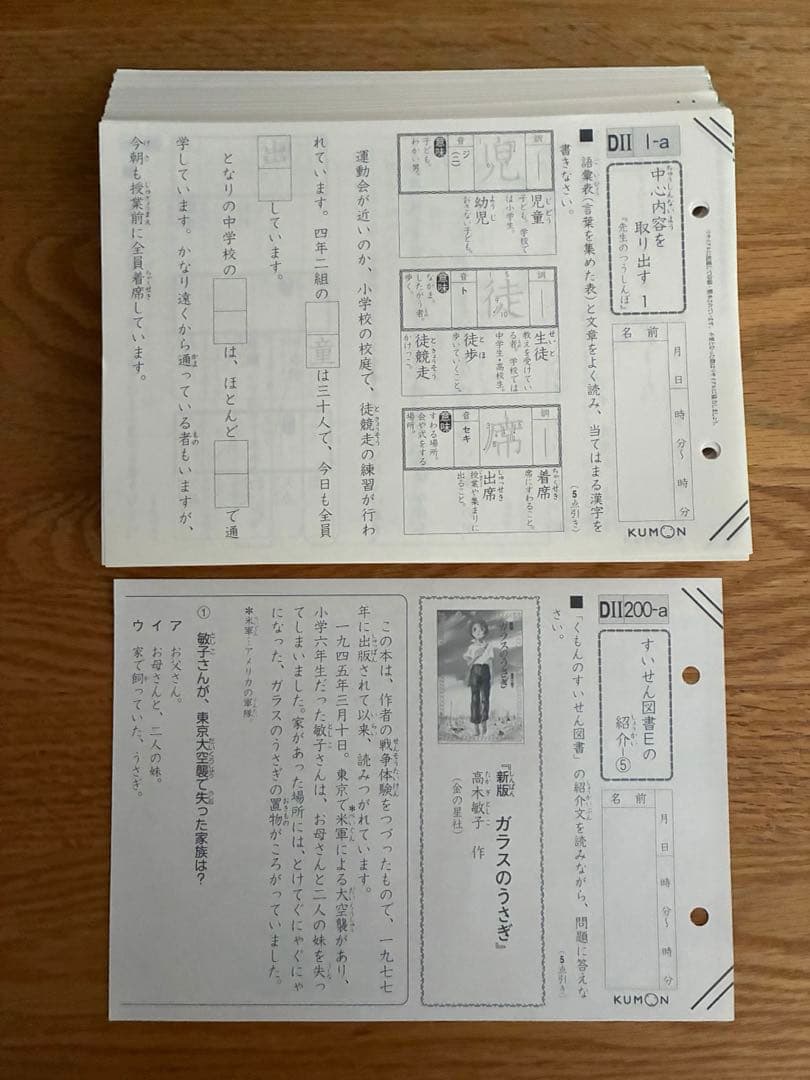 DII 1-a
中心内容を
取り出す 1
『先生のつうしんぼ』
名前
月 日
時 分〜 時 分
KUMON
■ 語彙表(言葉を集めた表)と文章をよく読み、当てはまる漢字を
書きなさい。
(5点引き)
訓
音 ジ(ニ)
意味
子ども。
わかい男。
児
児童
子ども。学校で
は小学生。
幼児
おさない子ども。
訓
音 ト
意味
なかま。
したがう者。
歩く。
徒
生徒
教えを受けてい
る者。学校では
中学生・高校生。
徒歩
歩いていくこと。
徒競走
かけっこ。
訓
音 セキ
意味
すわる場所。
会や式をする
場所。
席
着席
席にすわること。
出席
授業や集まりに
出ること。
運動会が近いのか、小学校の校庭で、徒競走の練習が行わ
れています。四年二組の 童は三十人で、今日も全員
出 しています。
となりの中学校の は、ほとんど で通
学しています。かなり遠くから通っている者もいますが、
今朝も授業前に全員着席しています。
DII 200-a
すいせん図書Eの
紹介-⑤
名前
月 日
時 分〜 時 分
KUMON
■ 「くもんのすいせん図書」の紹介文を読みながら、問題に答えな
さい。
(5点引き)
ガラスのうさぎ
『新版 ガラスのうさぎ』
高木敏子 作
(金の星社)
この本は、作者の戦争体験をつづったもので、一九七七
年に出版されて以来、読みつがれています。
一九四五年三月十日。東京で米軍*による大空襲があり、
小学六年生だった敏子さんは、お母さんと二人の妹を失っ
てしまいました。家があった場所には、とけてぐにゃぐにゃ
になった、ガラスのうさぎの置物がころがっていました。
*米軍…アメリカの軍隊
① 敏子さんが、東京大空襲で失った家族は?
ア お父さん。
イ お母さんと、二人の妹。
ウ 家で飼っていた、うさぎ。